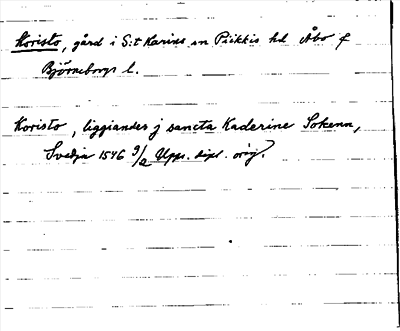 Koristo, gård i S:t Karins sn Piikkis hd Åbo f
Björneborgs l.
Koristo, liggiandes j sancta Kaderine Sokenn,
Svedja 1546 9/2 Upps. dipl. orig.